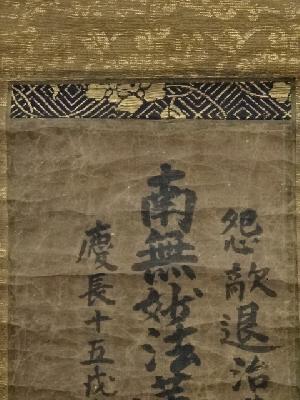 怨敵退治
南無妙法
慶長十五戊